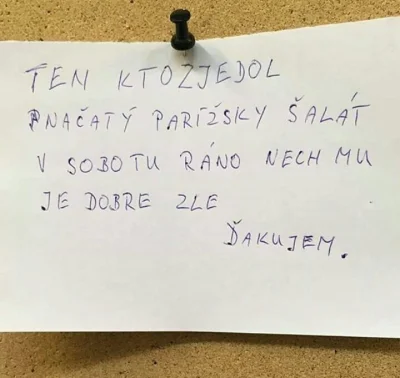 TEN KTOZJEDOL
NAČATÝ PARÍŽSKY ŠALÁT
V SOBOTU RÁNO NECH MU
JE DOBRE ZLE
ĎAKUJEM.